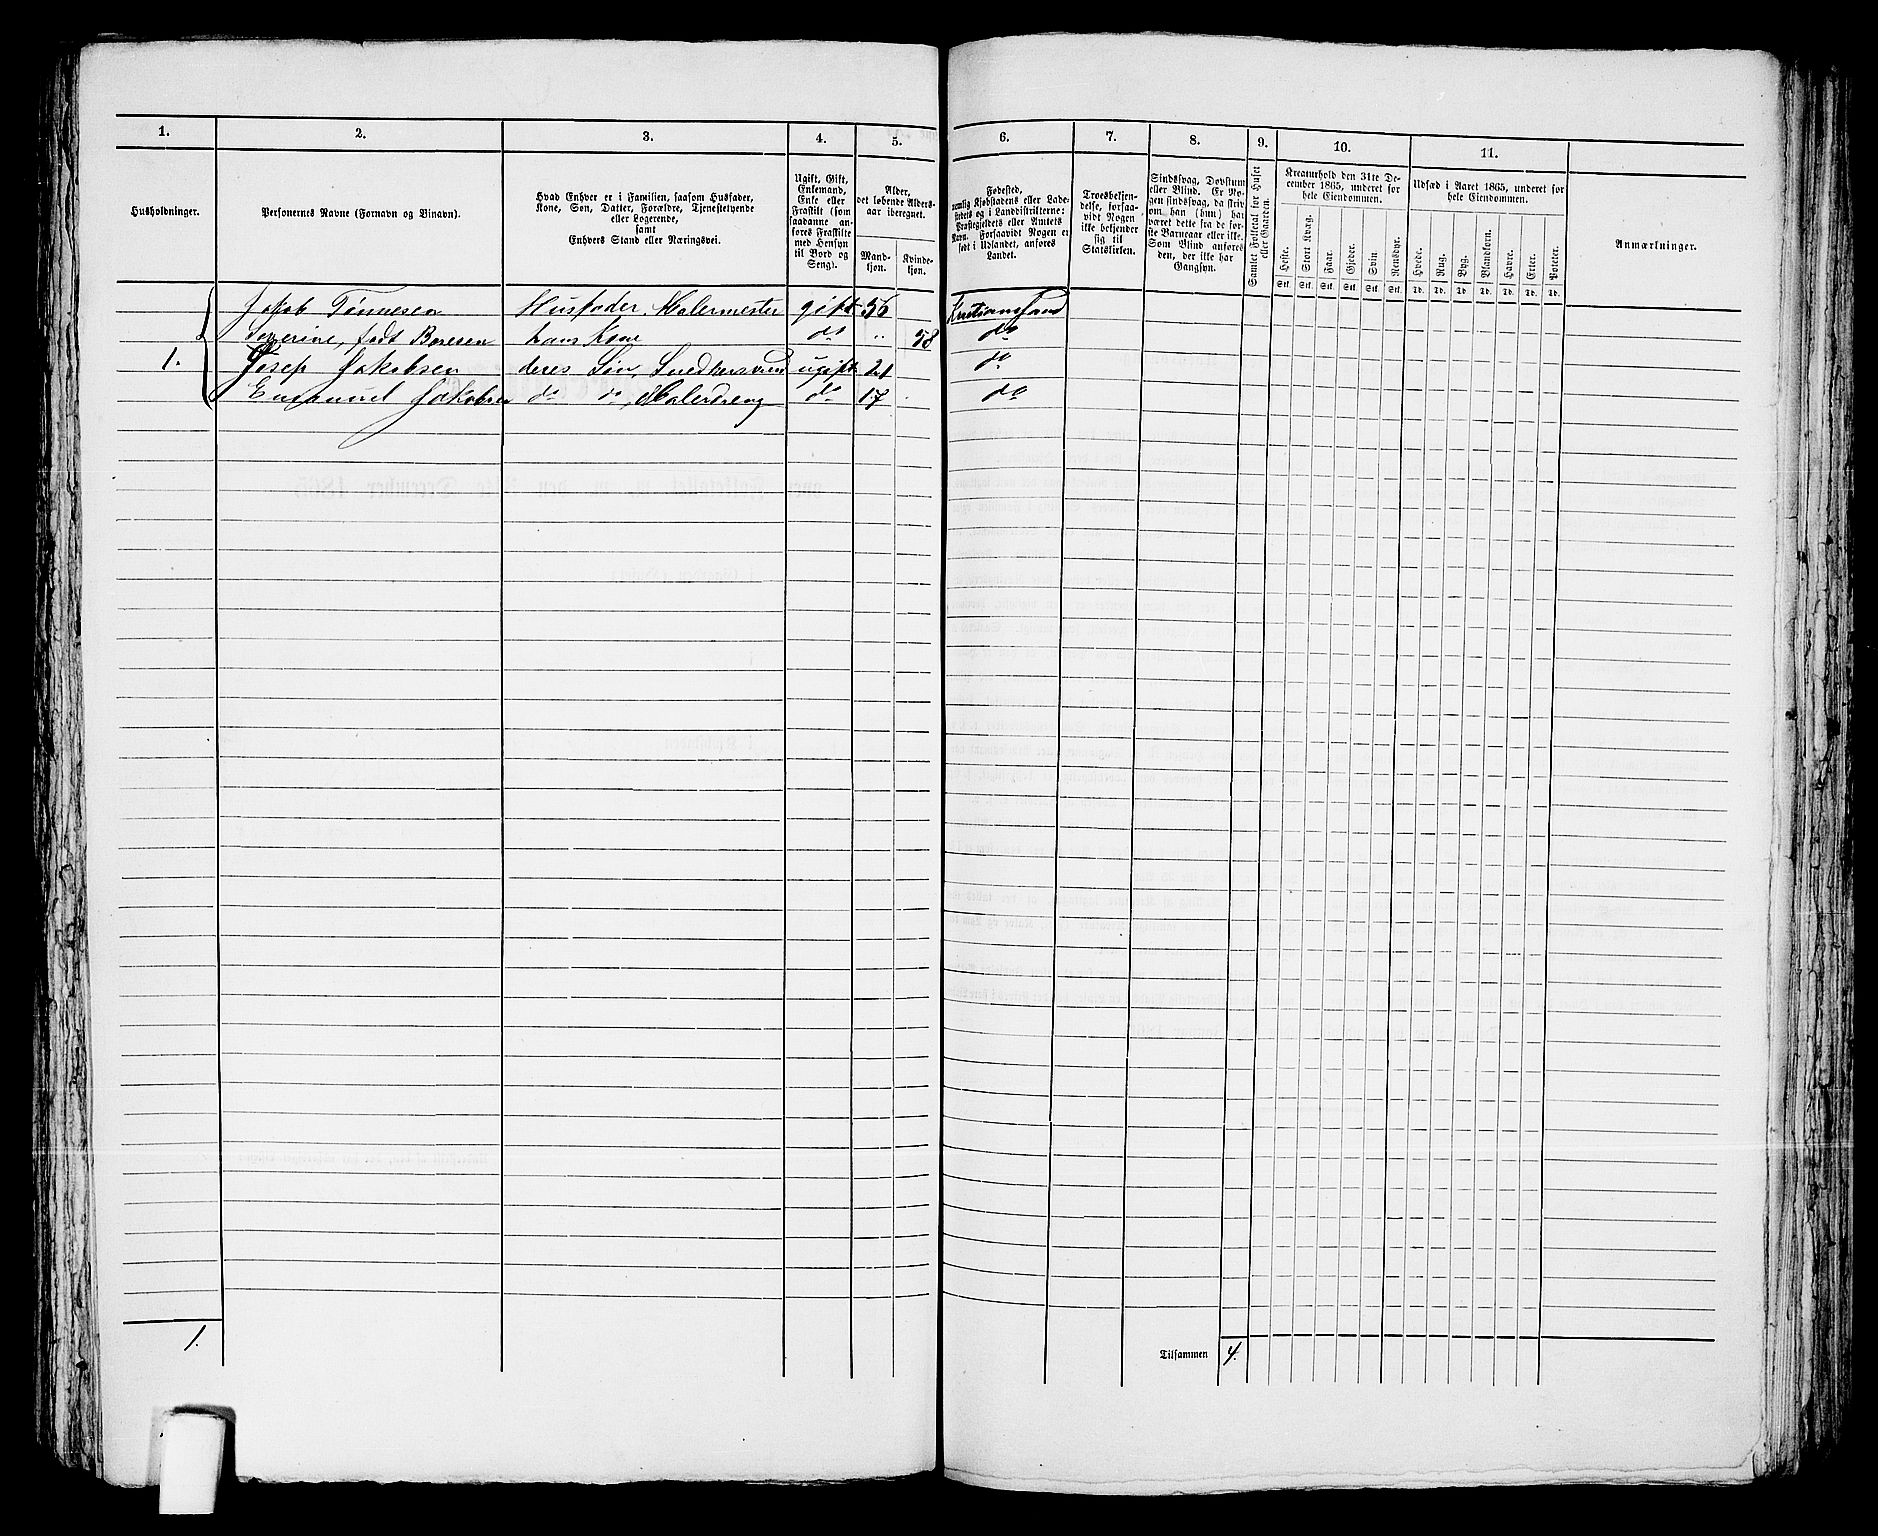 1. 2. 3. 4. 5. 6. 7. 8. 9. 10. 11.
Husholdninger.
Personernes Navne (Fornavn og Binavn).
Hvad Enhver er i Familien, saasom Husfader,
Kone, Søn, Datter, Forældre, Tjenestetyende
eller Logerende,
samt
Enhvers Stand eller Næringsvei.
Ugift, Gift,
Enkemand,
Enke eller
Fraskilt (som
saadanne an-
føres Fraskilte
med Hensyn
til Bord og
Seng).
Alder,
det løbende Alders-
aar iberegnet.
Mand-
kjøn.
Kvinde-
kjøn.
Fødested,
nemlig Kjøbstadens eller Lade-
stedets og i Landdistrikterne:
Præstegjeldets eller Amtets
Navn. Forsaavidt Nogen er
født i Udlandet, anføres
Landet.
Troesbekjen-
delse, forsaa-
vidt Nogen
ikke bekjender
sig til
Statskirken.
Sindssvag, Døvstum
eller Blind. Er No-
gen sindssvag, da skriv
om han (hun) har
været dette fra de før-
ste Barneaar eller ikke.
Som Blind anføres
den, der ikke har
Gangsyn.
Samlet Folketal for Huset
eller Gaarden.
Kreaturhold den 31te De-
cember 1865, underet for
hele Eiendommen.
Heste. Stort Kvæg. Faar. Gjeder. Svin. Rensdyr.
Stk. Stk. Stk. Stk. Stk. Stk.
Udsæd i Aaret 1865, underet for
hele Eiendommen.
Hvede. Rug. Byg. Blandkorn. Havre. Erter. Poteter.
Td. Td. Td. Td. Td. Td. Td.
Anmærkninger.
Jakob Tønnesen Husfader, Malermester gift 56 Kristianssand
Severine, født Boresen hans Kone do " 58 do
1. Josep Jakobsen deres Søn, Snedkersvend ugift 21 do
Emanuel Jakobsen do do, Malerdreng do 17 do
1. Tilsammen 4.